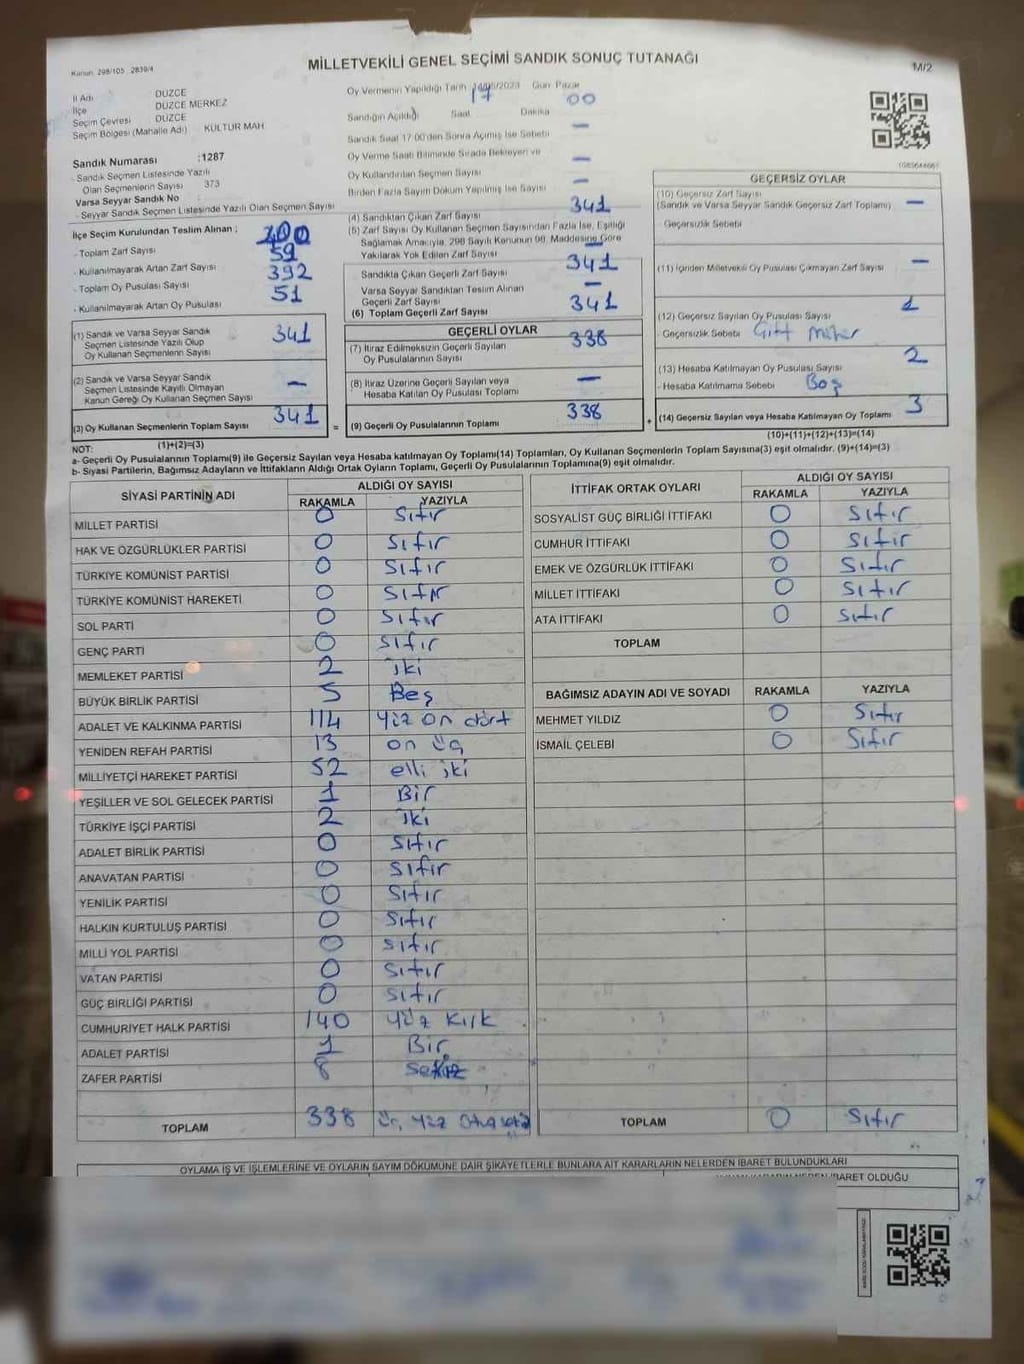 Kanun: 298/105 2839/4
MİLLETVEKİLİ GENEL SEÇİMİ SANDIK SONUÇ TUTANAĞI
M/2
İl Adı DÜZCE
İlçe DÜZCE MERKEZ
Seçim Çevresi DÜZCE
Seçim Bölgesi (Mahalle Adı) KÜLTÜR MAH
Sandık Numarası :1287
- Sandık Seçmen Listesinde Yazılı
Olan Seçmenlerin Sayısı 373
Varsa Seyyar Sandık No
- Seyyar Sandık Seçmen Listesinde Yazılı Olan Seçmen Sayısı
İlçe Seçim Kurulundan Teslim Alınan ;
- Toplam Zarf Sayısı 400
- Kullanılmayarak Artan Zarf Sayısı 59
- Toplam Oy Pusulası Sayısı 392
- Kullanılmayarak Artan Oy Pusulası 51
(1) Sandık ve Varsa Seyyar Sandık
Seçmen Listesinde Yazılı Olup
Oy Kullanan Seçmenlerin Sayısı 341
(2) Sandık ve Varsa Seyyar Sandık
Seçmen Listesinde Kayıtlı Olmayan
Kanun Gereği Oy Kullanan Seçmen Sayısı —
(3) Oy Kullanan Seçmenlerin Toplam Sayısı 341
(1)+(2)=(3)
Oy Vermenin Yapıldığı Tarih 14/05/2023 Gün Pazar
Sandığın Açıldığı Saat 17 Dakika 00
Sandık Saat 17:00'den Sonra Açılmış İse Sebebi —
Oy Verme Saati Bitiminde Sırada Bekleyen ve
Oy Kullandırılan Seçmen Sayısı —
Birden Fazla Sayım Döküm Yapılmış İse Sayısı —
(4) Sandıktan Çıkan Zarf Sayısı 341
(5) Zarf Sayısı Oy Kullanan Seçmen Sayısından Fazla İse, Eşitliği
Sağlamak Amacıyla, 298 Sayılı Kanunun 98. Maddesine Göre
Yakılarak Yok Edilen Zarf Sayısı —
Sandıkta Çıkan Geçerli Zarf Sayısı 341
Varsa Seyyar Sandıktan Teslim Alınan
Geçerli Zarf Sayısı —
(6) Toplam Geçerli Zarf Sayısı 341
GEÇERLİ OYLAR
(7) İtiraz Edilmeksizin Geçerli Sayılan
Oy Pusulalarının Sayısı 338
(8) İtiraz Üzerine Geçerli Sayılan veya
Hesaba Katılan Oy Pusulası Toplamı —
= (9) Geçerli Oy Pusulalarının Toplamı 338 +
GEÇERSİZ OYLAR
(10) Geçersiz Zarf Sayısı
(Sandık ve Varsa Seyyar Sandık Geçersiz Zarf Toplamı) —
- Geçersizlik Sebebi
(11) İçinden Milletvekili Oy Pusulası Çıkmayan Zarf Sayısı —
(12) Geçersiz Sayılan Oy Pusulası Sayısı 1
- Geçersizlik Sebebi Çift Mühür
(13) Hesaba Katılmayan Oy Pusulası Sayısı 2
- Hesaba Katılmama Sebebi Boş
(14) Geçersiz Sayılan veya Hesaba Katılmayan Oy Toplamı 3
(10)+(11)+(12)+(13)=(14)
NOT:
a- Geçerli Oy Pusulalarının Toplamı(9) ile Geçersiz Sayılan veya Hesaba katılmayan Oy Toplamı(14) Toplamları, Oy Kullanan Seçmenlerin Toplam Sayısına(3) eşit olmalıdır. (9)+(14)=(3)
b- Siyasi Partilerin, Bağımsız Adayların ve İttifakların Aldığı Ortak Oyların Toplamı, Geçerli Oy Pusulalarının Toplamına(9) eşit olmalıdır.
SİYASİ PARTİNİN ADI ALDIĞI OY SAYISI
RAKAMLA YAZIYLA
MİLLET PARTİSİ 0 Sıfır
HAK VE ÖZGÜRLÜKLER PARTİSİ 0 Sıfır
TÜRKİYE KOMÜNİST PARTİSİ 0 Sıfır
TÜRKİYE KOMÜNİST HAREKETİ 0 Sıfır
SOL PARTİ 0 Sıfır
GENÇ PARTİ 0 Sıfır
MEMLEKET PARTİSİ 2 İki
BÜYÜK BİRLİK PARTİSİ 5 Beş
ADALET VE KALKINMA PARTİSİ 114 Yüz on dört
YENİDEN REFAH PARTİSİ 13 on üç
MİLLİYETÇİ HAREKET PARTİSİ 52 elli iki
YEŞİLLER VE SOL GELECEK PARTİSİ 1 Bir
TÜRKİYE İŞÇİ PARTİSİ 2 İki
ADALET BİRLİK PARTİSİ 0 Sıfır
ANAVATAN PARTİSİ 0 Sıfır
YENİLİK PARTİSİ 0 Sıfır
HALKIN KURTULUŞ PARTİSİ 0 Sıfır
MİLLİ YOL PARTİSİ 0 Sıfır
VATAN PARTİSİ 0 Sıfır
GÜÇ BİRLİĞİ PARTİSİ 0 Sıfır
CUMHURİYET HALK PARTİSİ 140 Yüz Kırk
ADALET PARTİSİ 1 Bir
ZAFER PARTİSİ 8 Sekiz
TOPLAM 338 Üç Yüz Otuz sekiz
İTTİFAK ORTAK OYLARI ALDIĞI OY SAYISI
RAKAMLA YAZIYLA
SOSYALİST GÜÇ BİRLİĞİ İTTİFAKI 0 Sıfır
CUMHUR İTTİFAKI 0 Sıfır
EMEK VE ÖZGÜRLÜK İTTİFAKI 0 Sıfır
MİLLET İTTİFAKI 0 Sıfır
ATA İTTİFAKI 0 Sıfır
TOPLAM
BAĞIMSIZ ADAYIN ADI VE SOYADI RAKAMLA YAZIYLA
MEHMET YILDIZ 0 Sıfır
İSMAİL ÇELEBİ 0 Sıfır
TOPLAM 0 Sıfır
OYLAMA İŞ VE İŞLEMLERİNE VE OYLARIN SAYIM DÖKÜMÜNE DAİR ŞİKAYETLERLE BUNLARA AİT KARARLARIN NELERDEN İBARET BULUNDUKLARI
İBARET OLDUĞU